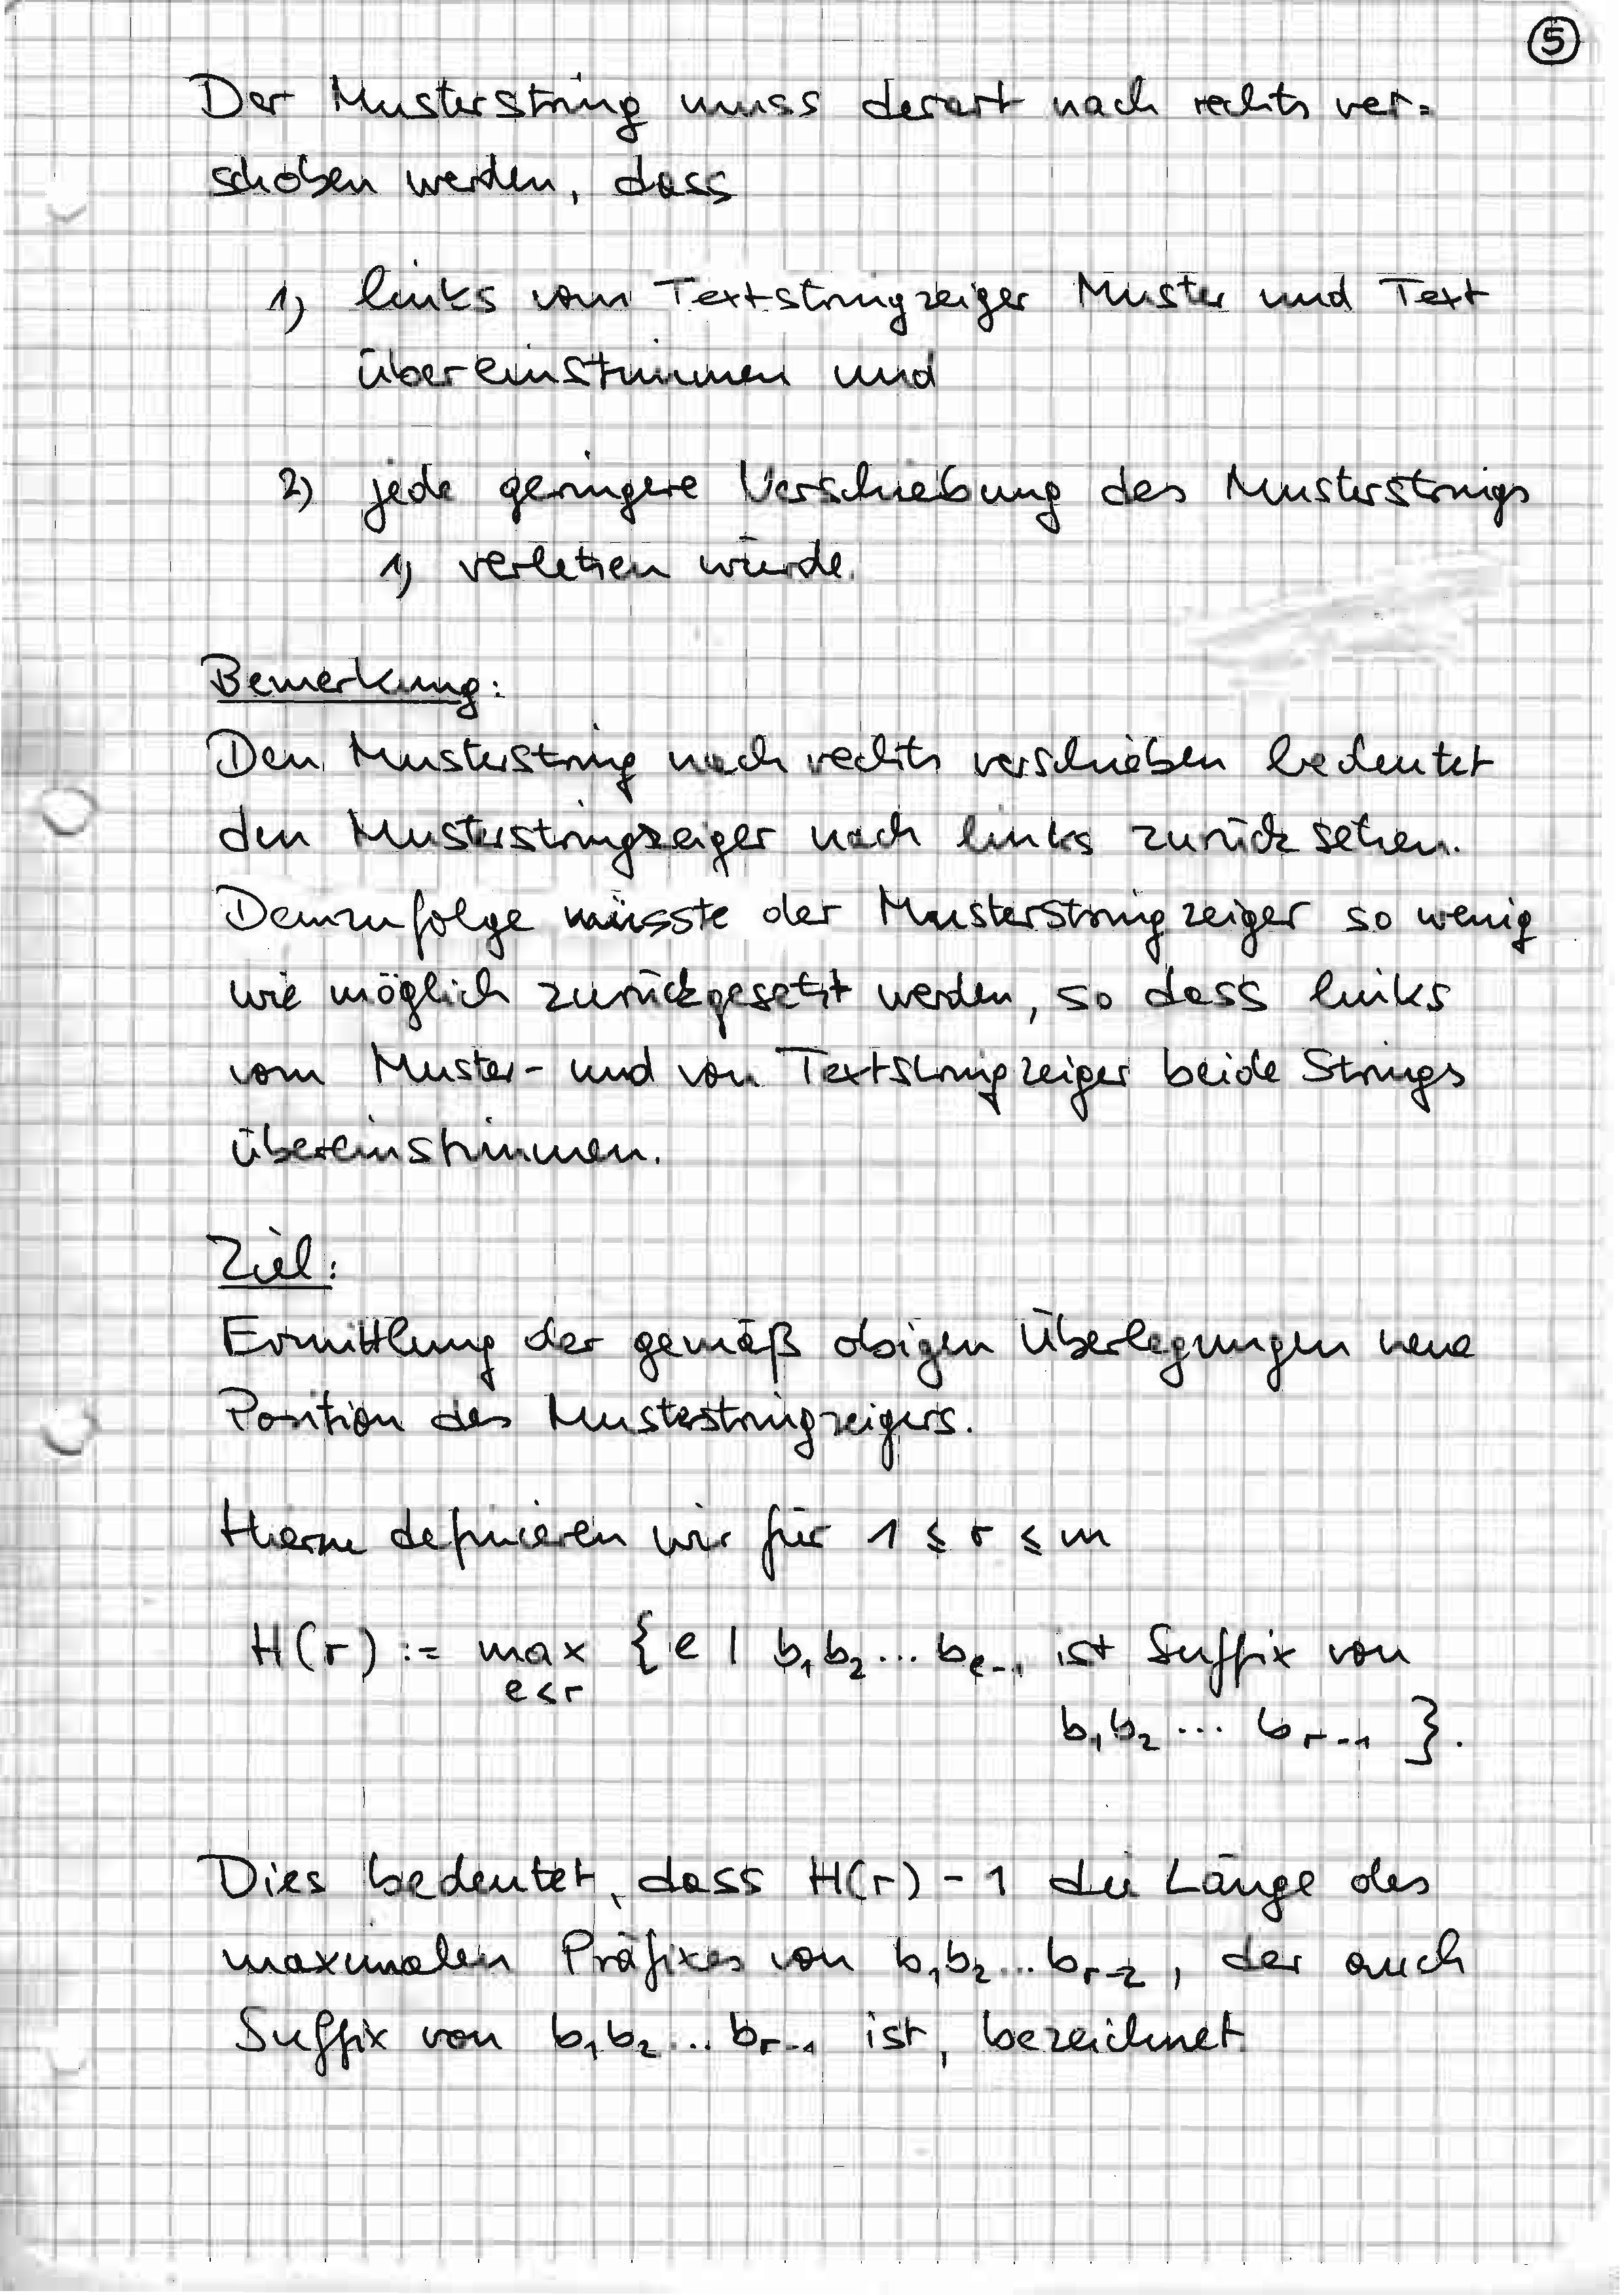 5
Der Musterstring muss derart nach rechts ver=
schoben werden, dass
1) links vom Textstringzeiger Muster und Text
übereinstimmen und
2) jede geringere Verschiebung des Musterstrings
1) verletzen würde.
Bemerkung:
Den Musterstring nach rechts verschieben bedeutet
den Musterstringzeiger nach links zurück setzen.
Demzufolge müsste der Musterstringzeiger so wenig
wie möglich zurückgesetzt werden, so dass links
vom Muster- und vom Textstringzeiger beide Strings
übereinstimmen.
Ziel:
Ermittlung der gemäß obigen Überlegungen neue
Position des Musterstringzeigers.
Hierzu definieren wir für 1 ≤ r ≤ m
H(r) := max {ℓ | b₁b₂...bℓ₋₁ ist Suffix von
ℓ<r
b₁b₂ ... bᵣ₋₁ }.
Dies bedeutet, dass H(r) - 1 die Länge des
maximalen Präfixes von b₁b₂...bᵣ₋₂, der auch
Suffix von b₁b₂...bᵣ₋₁ ist, bezeichnet.